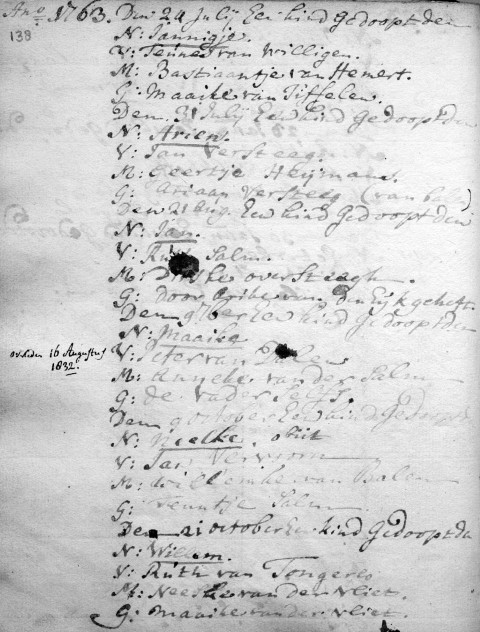 Ano 1763. Den 24 Julij Een kind Gedoopt den
138
N: Jannigje.
V: Teunes van Willigen.
M: Bastiaantje van Hemert.
G: Maaike van Tiffelen.
Den 31 Julij Een kind Gedoopt den
N: Arien.
V: Jan Versteegh
M: Geertje Heymans.
G: Ariaan Versteeg (van
Den 21 Aug. Een kind Gedoopt den
N: Jan.
V: Salm.
M: over Steegh.
G: Door van den Eijk geheft.
Den Een kind Gedoopt den
N: Maaike
overleden 16 Augustus
1832.
V: Peter van
M: Anneke van der Salm
G: de vader selfs.
Den 9 october Een kind Gedoopt
N: Neelke. obiit
V: Jan Verworn
M: Willemke van Balen
G: Teuntje Salm
Den 21 october Een kind Gedoopt den
N: Willem.
V: Ruth van Tongeren
M: Neeske van der Vliet.
G: Maaike van der Vliet.